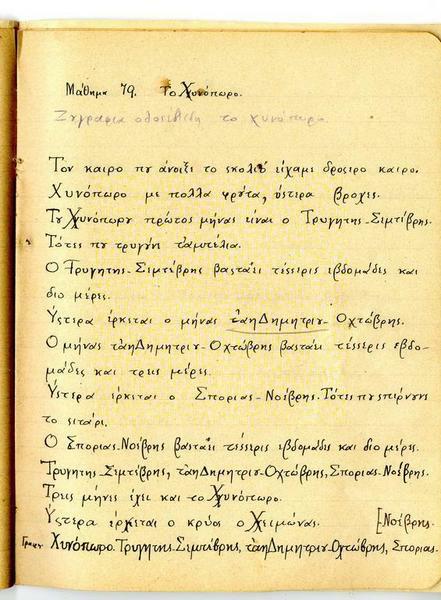 Μάθημα 79. Το Χυνόπωρο.
Ζυγραφια το χυνόπωρο.
Τον καιρο πυ άνοιξε το σκολιό είχαμε δροσερο καιρο.
Χυνόπωρο με πολλα φρύτα, ύστερα βροχες.
Τυ Χυνόπωρυ πρώτος μήνας είναι ο Τρυγητης-Σιμτέβρης.
Τότες πυ τρυγυν ταμπέλια.
Ο Τρυγητης-Σιμτέβρης βασταει τέσσερις εβδομάδες και
διο μέρες.
Υστερα έρκεται ο μήνας ταηΔημητριυ-Οχτώβρης.
Ο μήνας ταηΔημητριυ-Οχτώβρης βασταει τέσσερις εβδο-
μάδες και τρεις μέρες.
Υστερα έρκεται ο Σποριας-Νοέβρης. Τότες πυ σπέρνυν
το σιτάρι.
Ο Σποριας-Νοέβρης βασταει τέσσερις εβδομάδες και διο μέρες.
Τρυγητης-Σιμτέβρης, ταηΔημητριυ-Οχτώβρης, Σποριας-Νοέβρης.
Τρεις μήνες έχει και το Χυνόπωρο.
Υστερα έρκεται ο κρύος ο Χειμώνας. [Νοέβρης.
Χυνόπωρο. Τρυγητης-Σιμτέβρης, ταηΔημητριυ-Οχτώβρης, Σποριας-